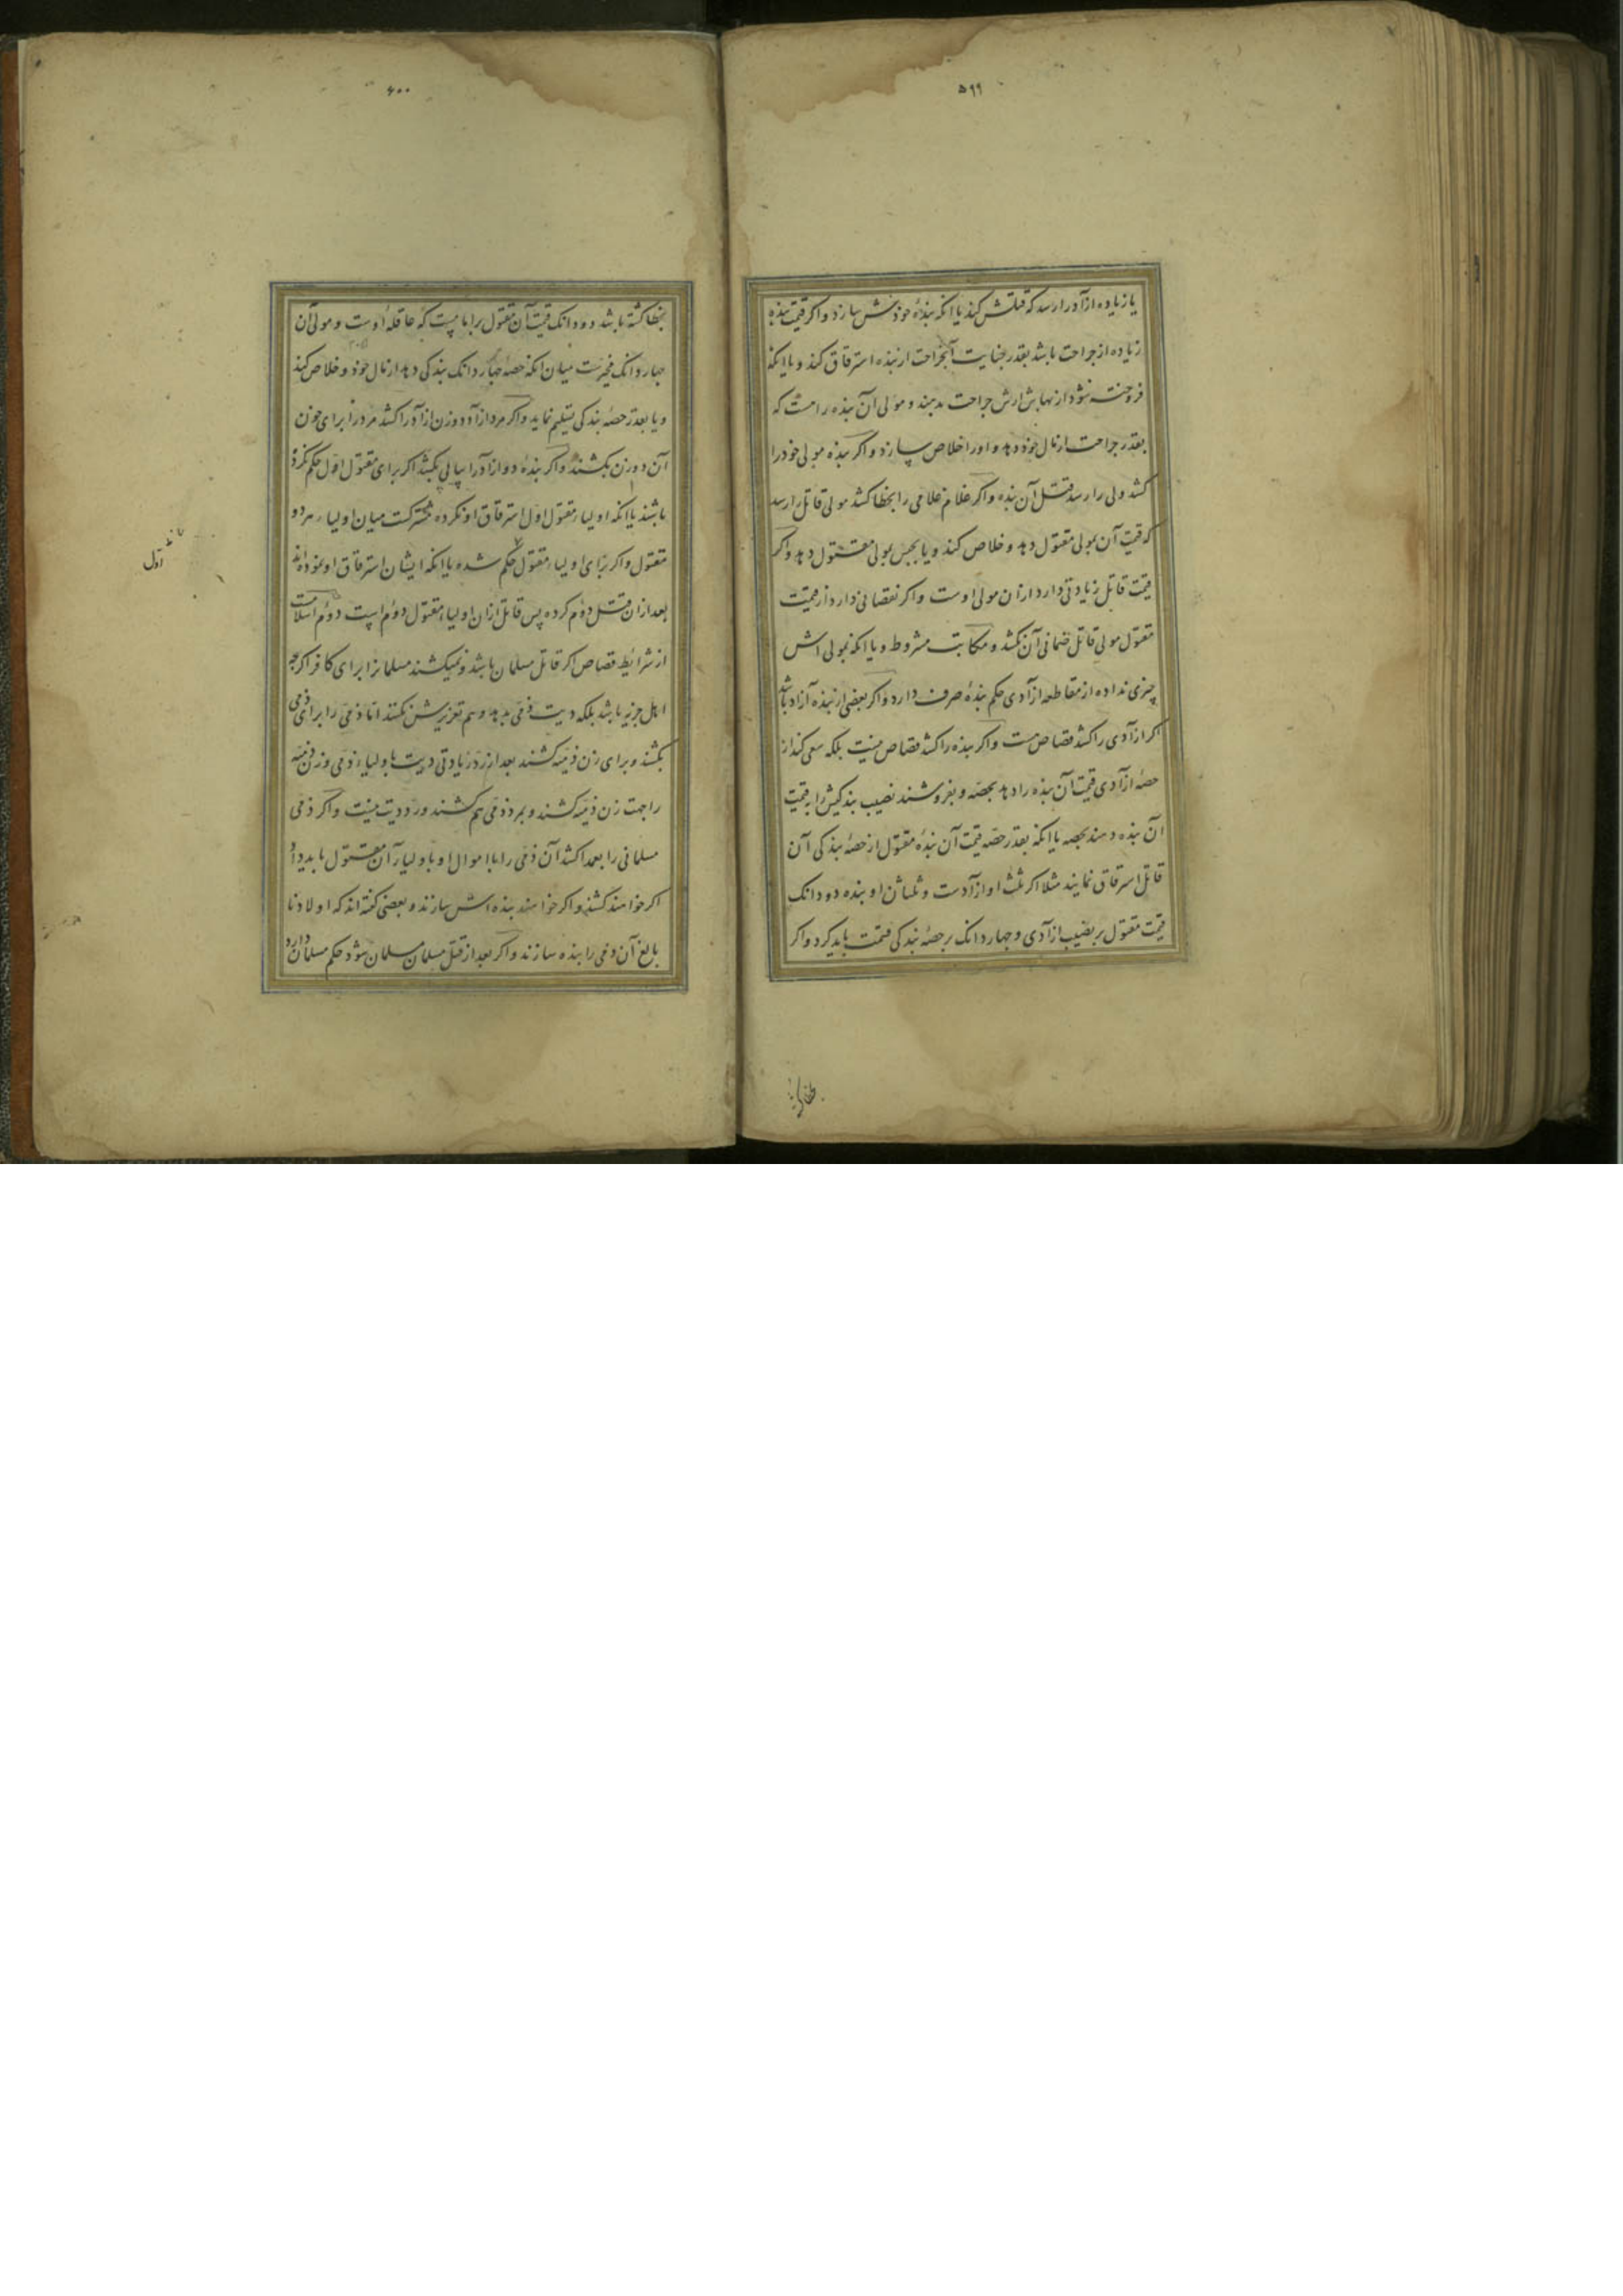 ۵۹۹
یا زیاده ازآدرا رسد که قتلش کند یا انکه بندهٔ خودش سازد و اکر قیمت بنده
زیاده از جراحت باشد بقدر جنایت آنجراحت ازبنده استرقاق کند و یا انکه
فروخته شود از بهاش ارش جراحت بدهند و مولی آن بنده را هست که
بقدر جراحت ازمال خود دهد و اورا خلاص سازد و اکر بنده مولی خودرا
کشد ولی را رسد قتل آن بنده و اکر غلام غلامی را بخطا کشد مولی قاتل را رسد
که قیمت آن بمولی مقتول دهد و خلاص کند و یا بمولی مقتول دهد و اکر
قیمت قاتل زیادتی دارد ازان مولی اوست و اکر نقصانی دارد از قیمت
مقتول مولی قاتل ضمانی آن نکشد و مکاتبت مشروط و یا انکه بمولی اش
چیزی نداده از مقاطعه ازآدی حکم بندهٔ صرف دارد و اکر بعضی از بنده آزاد باشد
اکر ازآدی را کشد قصاص هست و اکر بنده را کشد قصاص نیست بلکه سعی کند از
حصهٔ ازآدی قیمت آن بنده را دهد بحصه و بفروشند نصیب بندکیش را به قیمت
آن بنده دهند بحصه یا انکه بقدر حصه قیمت آن بندهٔ مقتول از حصهٔ بندکی آن
قاتل استرقاق نمایند مثلا اکر ثلث او ازآدست و ثلثان او بنده دو دانک
قیمت مقتول بر نصیب ازآدی و چهار دانک بر حصهٔ بندکی قسمت باید کرد و اکر
بخطا کشته
۶۰۰
بخطا کشته باشد دو دانک قیمت آن مقتول را بامامیست که عاقلهٔ اوست و مولی آن
چهار دانک مخیرست میان انکه حصهٔ چهار دانک بندکی دهد ازمال خود و خلاص کند
و یا بقدر حصهٔ بندکی تسلیم نماید و اکر مرد ازآد دو زن ازآدرا کشد مردرا برای خون
آن دو زن بکشند و اکر بندهٔ دو ازآدرا پیاپی بکشد اکر برای مقتول اول حکم نکرده
باشند یا انکه اولیاء مقتول اول استرقاق او نکرده مشترکست میان اولیاء هر دو
مقتول و اکر برای اولیاء مقتول حکم شده یا انکه ایشان استرقاق او نموده اند
بعد ازان قتل دوم کرده پس قاتل ازان اولیاء مقتول دوم است دوم اسلامست
از شرایط قصاص اکر قاتل مسلمان باشد و نمیکشند مسلمانرا برای کافر اکرچه
اهل جزیه باشد بلکه دیت ذمی بدهد و هم تعزیرش بکنند اما ذمی را برای ذمی
بکشند و برای زن ذمیه کشند بعد از رد زیادتی دیت باولیاء ذمی و زن ذمیه
را جهت زن ذمیه کشند و بمرد ذمی هم کشند و رد دیت نیست و اکر ذمی
مسلمانی را بعمدا کشد آن ذمی را با اموال او باولیاء آن مقتول باید داد
اکر خواهند کشند و اکر خواهند بنده اش سازند و بعضی کفته اند که اولاد نا
بالغ آن ذمی را بنده سازند و اکر بعد از قتل مسلمان مسلمان شود حکم مسلمان دارد
اول